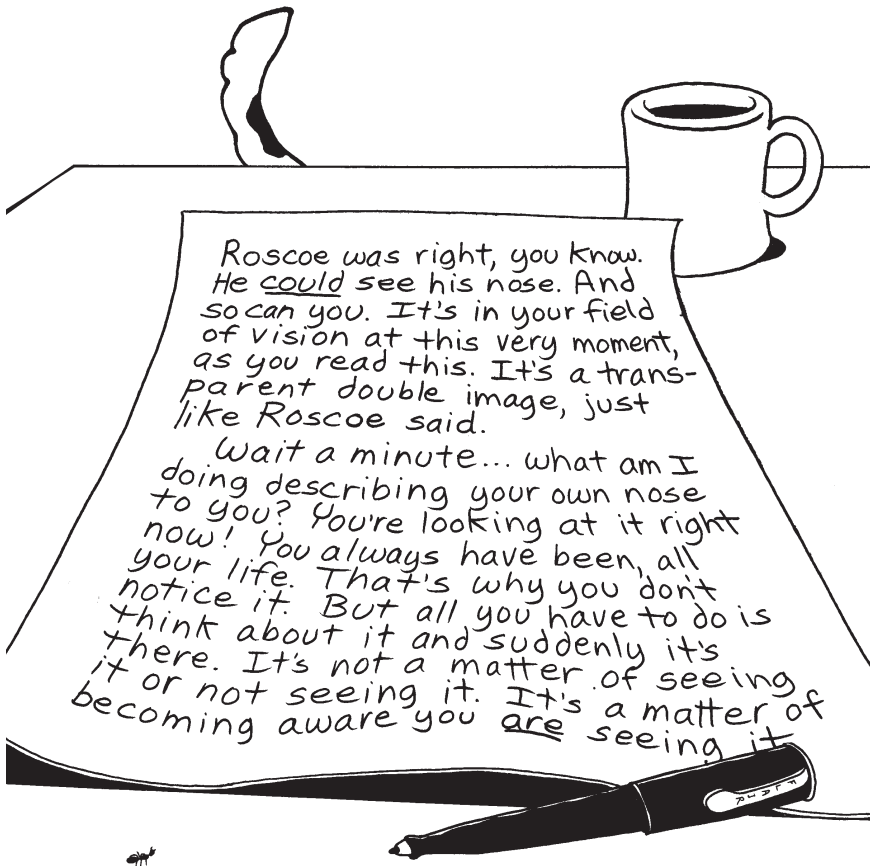 Roscoe was right, you know.
He could see his nose. And
so can you. It's in your field
of vision at this very moment,
as you read this. It's a trans-
parent double image, just
like Roscoe said.
Wait a minute... what am I
doing describing your own nose
to you? You're looking at it right
now! You always have been, all
your life. That's why you don't
notice it. But all you have to do is
think about it and suddenly it's
there. It's not a matter of seeing
it or not seeing it. It's a matter of
becoming aware you are seeing it
FLAIR